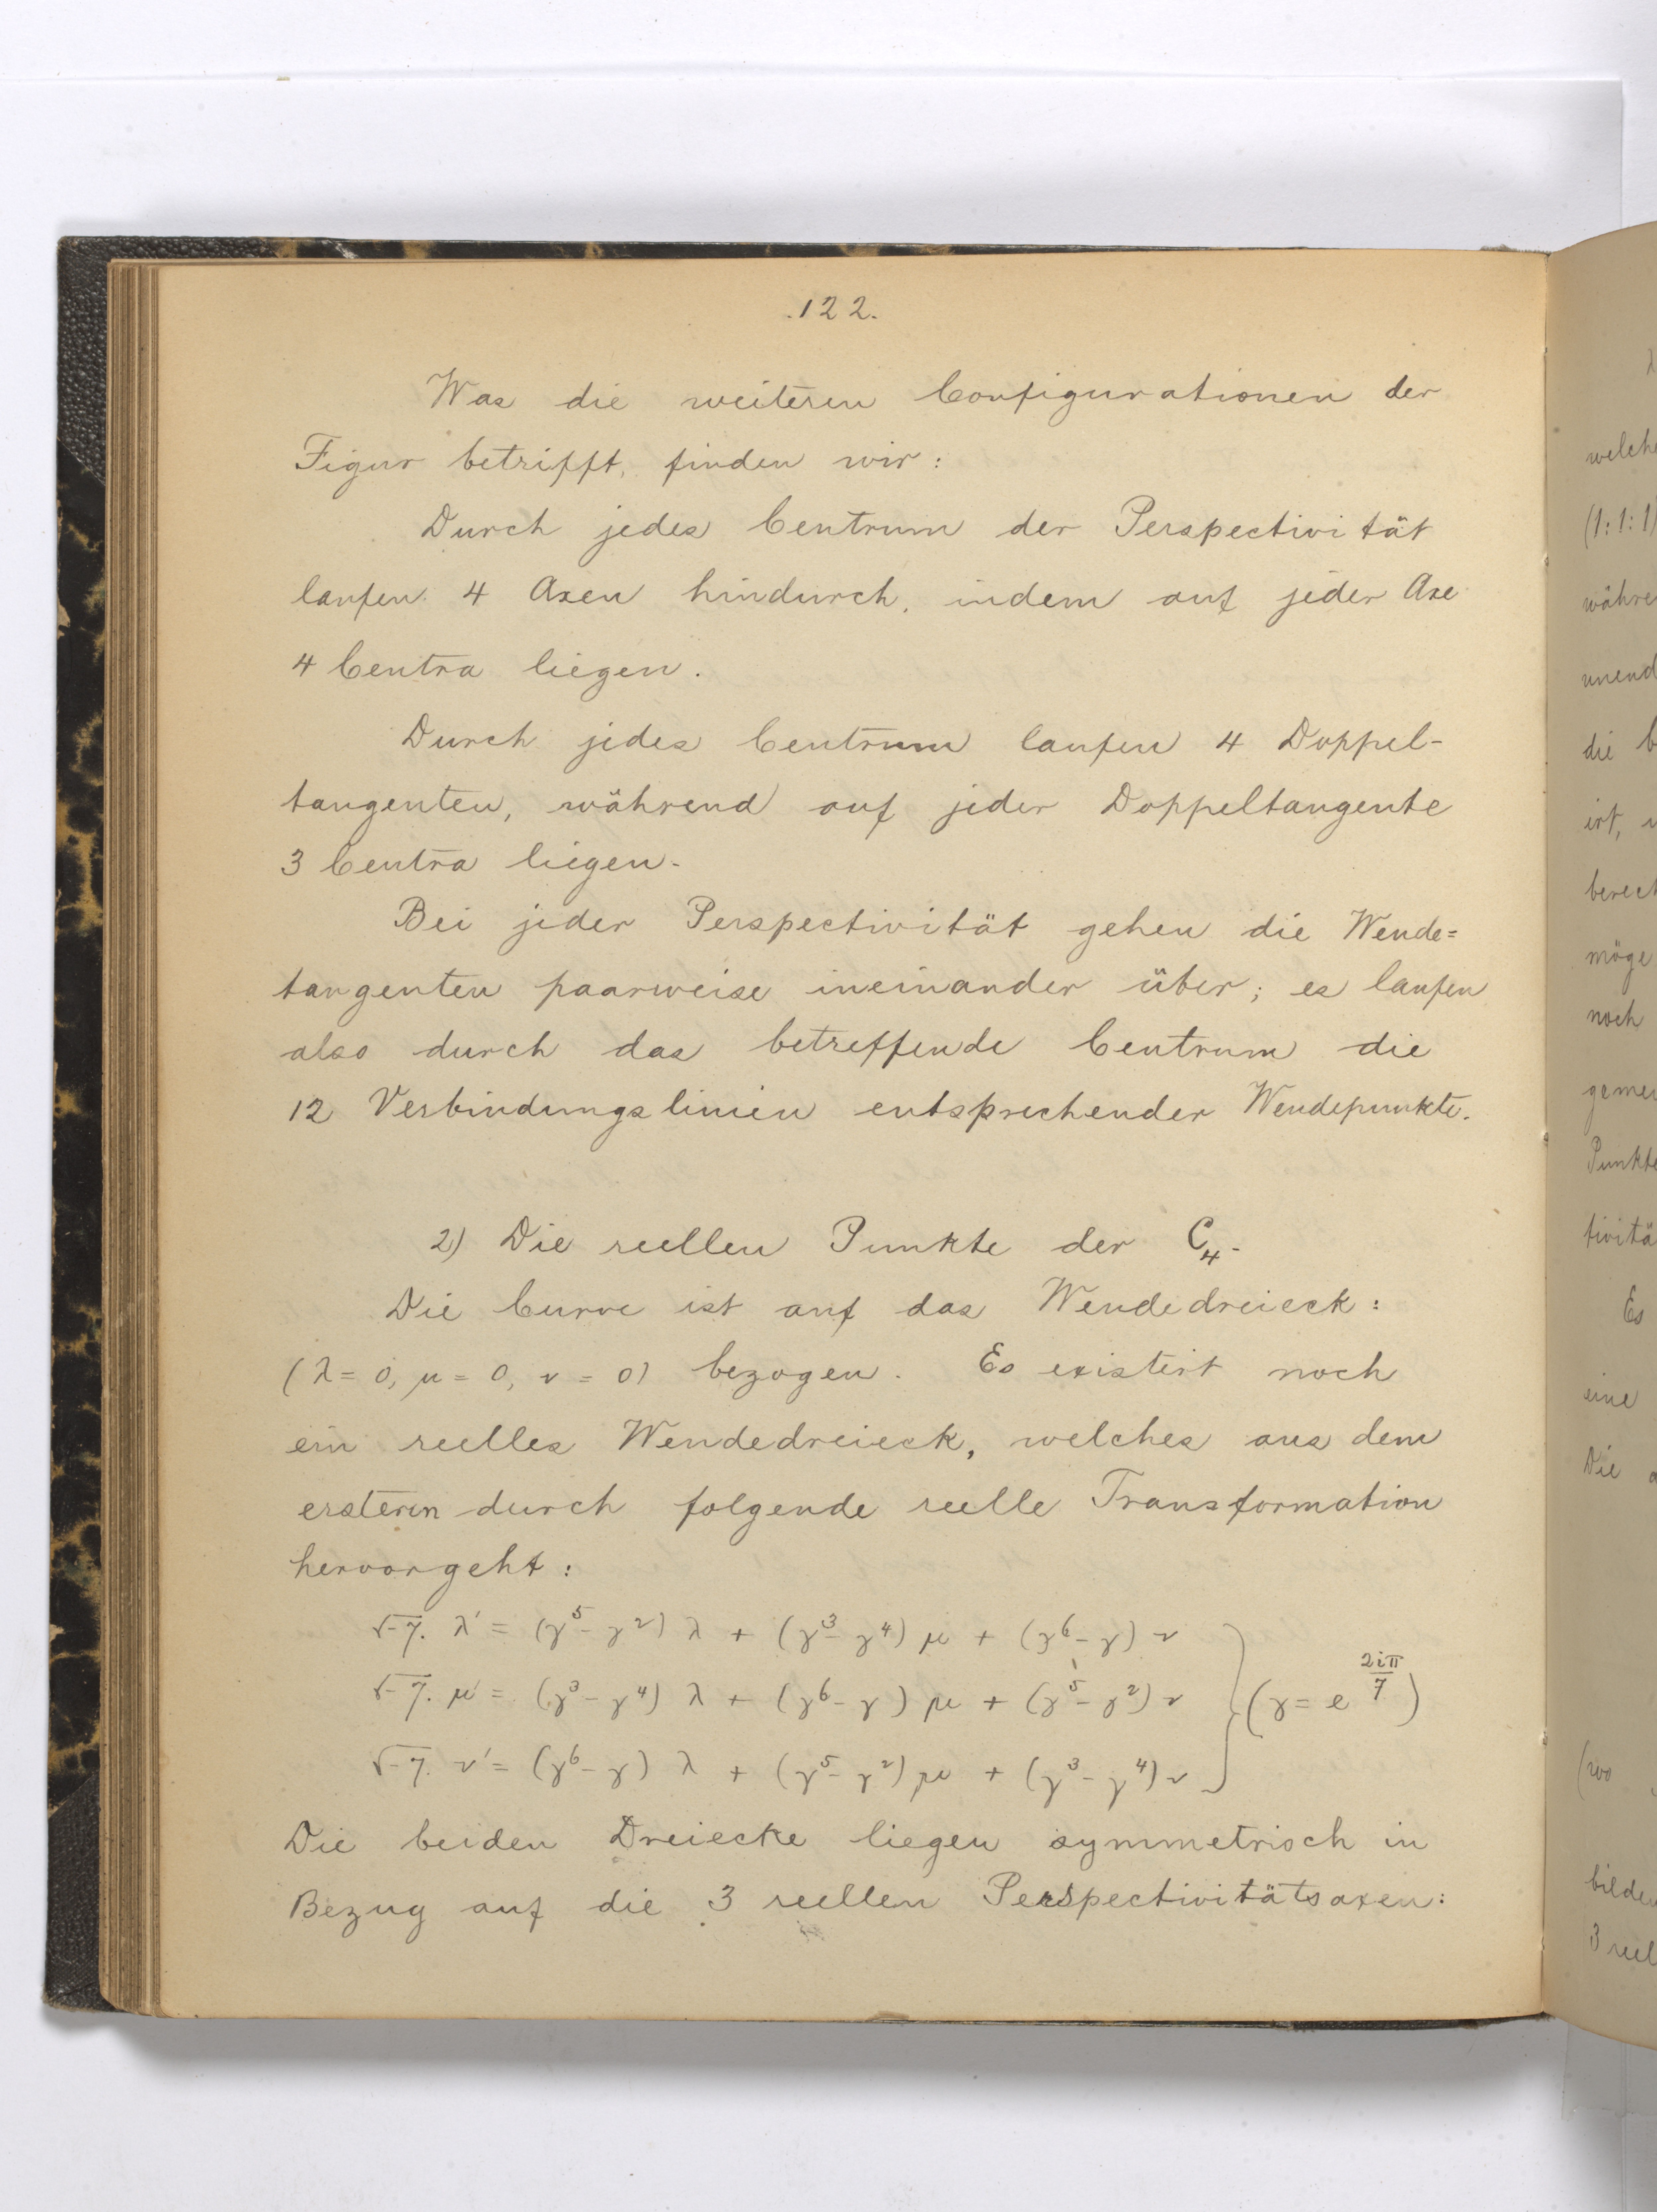 .122.
Was die weiteren Configurationen der
Figur betrifft, finden wir:
Durch jedes Centrum der Perspectivität
laufen 4 Axen hindurch, indem auf jeder Axe
4 Centra liegen.
Durch jedes Centrum laufen 4 Doppel-
tangenten, während auf jeder Doppeltangente
3 Centra liegen.
Bei jeder Perspectivität gehen die Wende=
tangenten paarweise ineinander über; es laufen
also durch das betreffende Centrum die
12 Verbindungslinien entsprechender Wendepunkte.
2) Die reellen Punkte der C₄.
Die Curve ist auf das Wendedreieck:
(λ = 0, μ = 0, ν = 0) bezogen. Es existirt noch
ein reelles Wendedreieck, welches aus dem
ersteren durch folgende reelle Transformation
hervorgeht:
√-7. λ' = (γ⁵ - γ²) λ + (γ³ - γ⁴) μ + (γ⁶ - γ) ν
√-7. μ' = (γ³ - γ⁴) λ + (γ⁶ - γ) μ + (γ⁵ - γ²) ν } (γ = e^{2iπ/7})
√-7. ν' = (γ⁶ - γ) λ + (γ⁵ - γ²) μ + (γ³ - γ⁴) ν
Die beiden Dreiecke liegen symmetrisch in
Bezug auf die 3 reellen Perspectivitätsaxen:
welche
(1:1:1)
währe
unend
die
ist,
berech
möge
noch
gemei
Punkte
tivitä
Es
eine
Die
(wo
bilden
3 reel